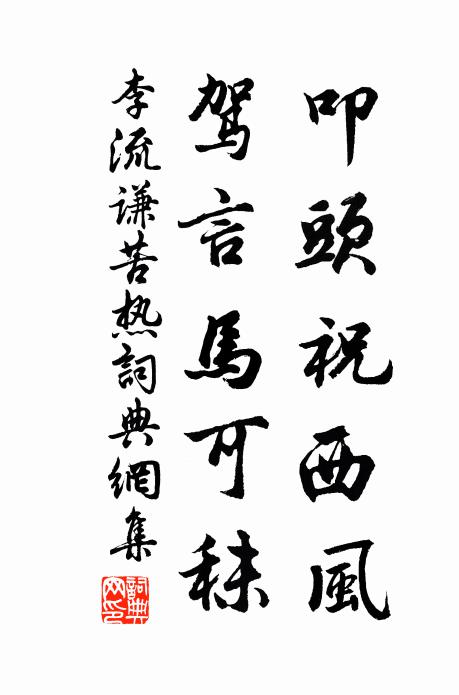 叩頭祝西風
駕言馬可秣
李流謙苦热詞典網集
詞典网印